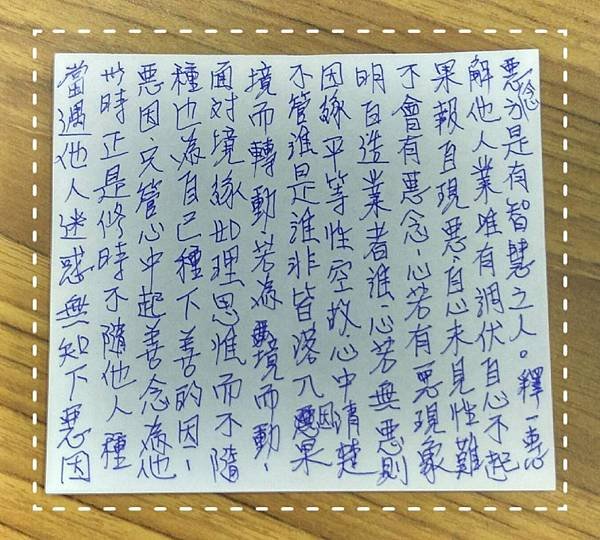 當遇他人迷惑無知下惡因
此時正是修時不隨他人種
惡因、只管心中起善念為他
種也為自己種下善的因、
面對境緣如理思惟而不隨
境而轉動若為境而動、
不管誰是誰非皆落入因果
因緣平等性空故心中清楚
明白造業者誰、心若無惡則
不會有惡念、心若有惡現象
果報自現惡、自心未見性難
解他人業唯有調伏自心不起
惡念方是有智慧之人。釋一